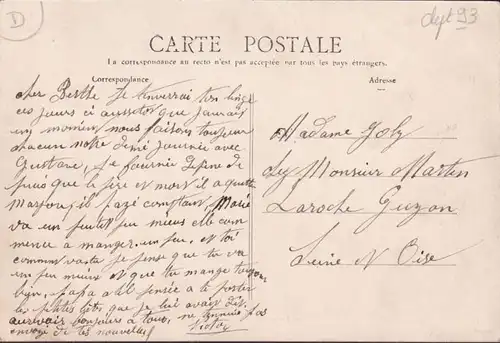 D
Dept 93
CARTE POSTALE
La correspondance au recto n'est pas acceptée par tous les pays étrangers.
Correspondance
Adresse
cher Berthe Je t'enverrai ton linge
ces jours ci aussitot que j'aurais
un moment nous faisons toujours
chacun notre demi journée avec
Gustave, je
puis que le père est mort il a quitté
il payé comptant, Marie
va un petit peu mieux elle com
mence à manger un peu, et toi
comment vas tu je pense que tu va
un peu mieux et que tu mange toujours
bien, papa a til pensée a te porter
les petites que je lui avait dit
aurevoir bonjours à tous, ne t'ennuie pas
envoye de tes nouvelles Victor
Madame Joly
Chez Monsieur Martin
Laroche Guyon
Seine et Oise